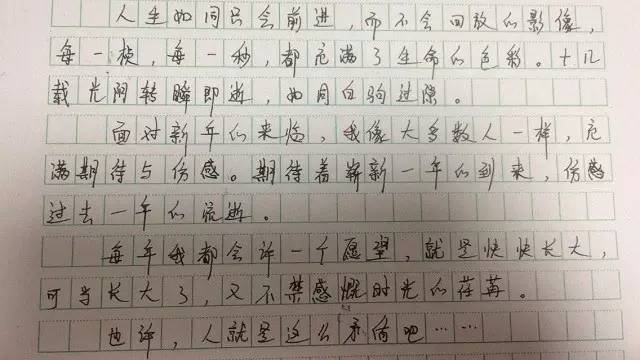 人生如同只会前进，而不会回放的影像，
每一桢，每一秒，都充满了生命的色彩。十几
载光阴转瞬即逝，如同白驹过隙。
面对新年的来临，我像大多数人一样，充
满期待与伤感。期待着崭新一年的到来，伤感
过去一年的流逝。
每年我都会许一个愿望，就是快快长大，
可当长大了，又不禁感慨时光的荏苒。
也许，人就是这么矛盾吧……